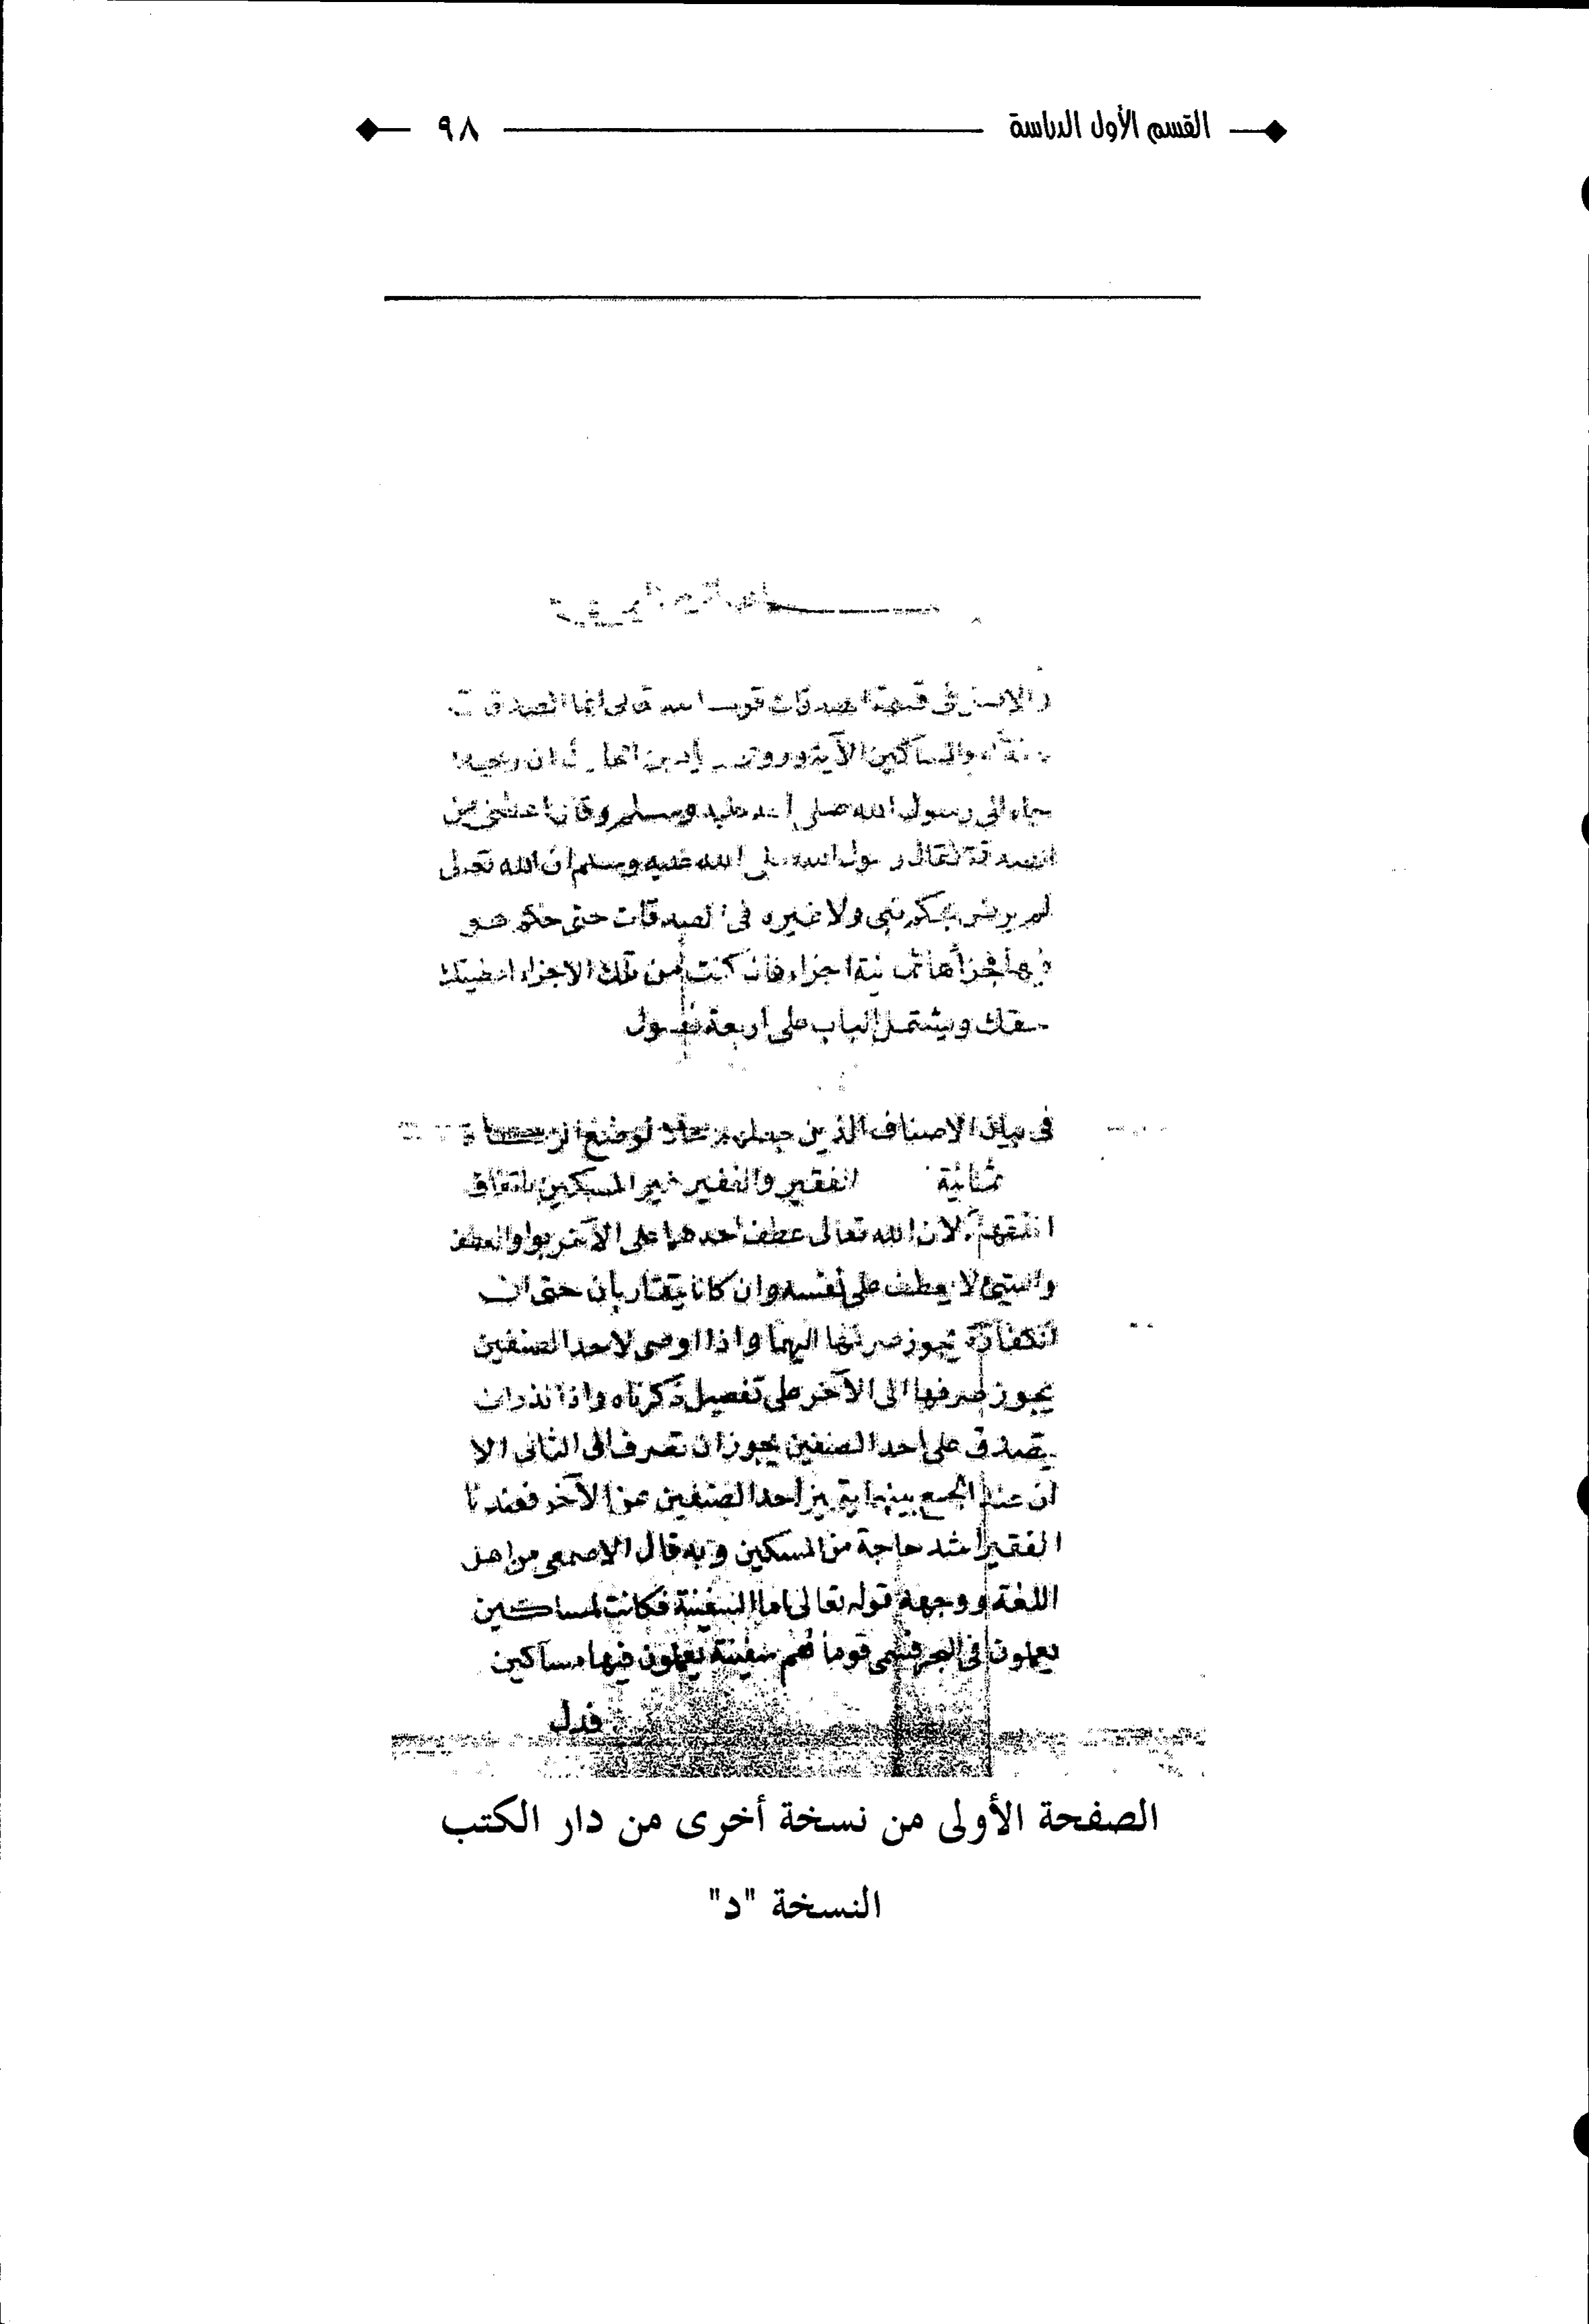 القسم الأول الدراسة
٩٨
والاصل في قسمة الصدقات قوله تعالى انما الصدقات
والمساكين الآية وروى ان
جاء الى رسول الله صلى الله عليه وسلم وقال اعطني من
الصدقة فقال رسول الله صلى الله عليه وسلم ان الله تعالى
لم يرض بحكم نبي ولا غيره في الصدقات حتى حكم هو
فيها فجزأها ثمانية اجزاء فان كنت من تلك الاجزاء اعطيتك
حقك ويشتمل الباب على اربعة فصول
في بيان الاصناف الذين جعلهم محلا لوضع الزكاة
ثمانية الفقير والفقير غير المسكين باتفاق
الفقهاء لان الله تعالى عطف احدهما على الآخر بواو العطف
والشيئ لا يعطف على نفسه وان كانا يتقاربان حتى ان
الكفارة يجوز صرفها اليهما واذا اوصى لاحد الصنفين
يجوز صرفها الى الآخر على تفصيل ذكرناه واذا نذر ان
يتصدق على احد الصنفين يجوز ان تصرف الى الثاني الا
ان عند الجمع بينهما يتميز احد الصنفين عن الآخر فعندنا
الفقير اشد حاجة من المسكين وبه قال الاصمعي من اهل
اللغة ووجهه قوله تعالى اما السفينة فكانت لمساكين
يعملون في البحر فسمى قوما لهم سفينة يعملون فيها مساكين
فدل
الصفحة الأولى من نسخة أخرى من دار الكتب
النسخة "د"